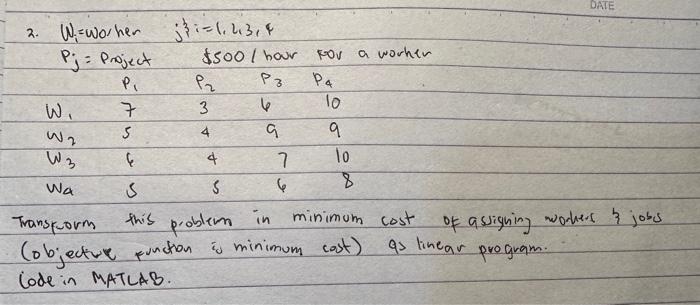 DATE
2. Wi=worker j&i=1,2,3,4
Pj = Project $500/hour for a worker
P1 P2 P3 P4
W1 7 3 6 10
W2 5 4 9 9
W3 6 4 7 10
W4 5 5 6 8
Transform this problem in minimum cost of assigning workers & jobs
(objective function is minimum cost) as linear program.
Code in MATLAB.